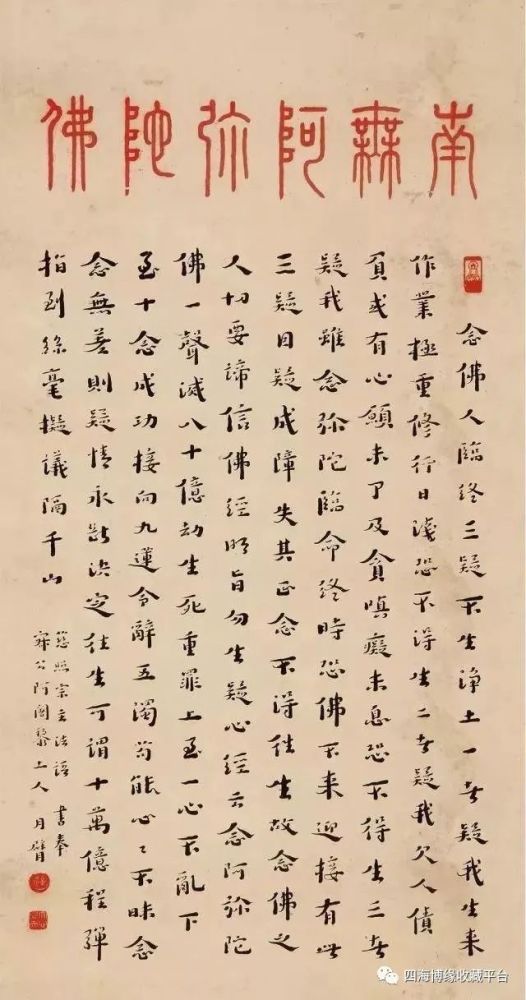 南無阿弥陀佛
念佛人臨終三疑不生淨土一者疑我生来
作業極重修行日淺恐不得生二者疑我欠人債
負或有心願未了及貪嗔癡未息恐不得生三者
疑我雖念弥陀臨命終時恐佛不来迎接有此
三疑因疑成障失其正念不得往生故念佛之
人切要諦信佛經明旨勿生疑心經云念阿弥陀
佛一聲滅八十億劫生死重罪上至一心不亂下
至十念成功接向九蓮令辭五濁苟能心〻不昧念
念無差則疑情永斷決定往生可謂十萬億程彈
指到絲毫擬議隔千山
慈照宗主法語 書奉
寂公阿闍黎上人 月臂
四海博缘收藏平台